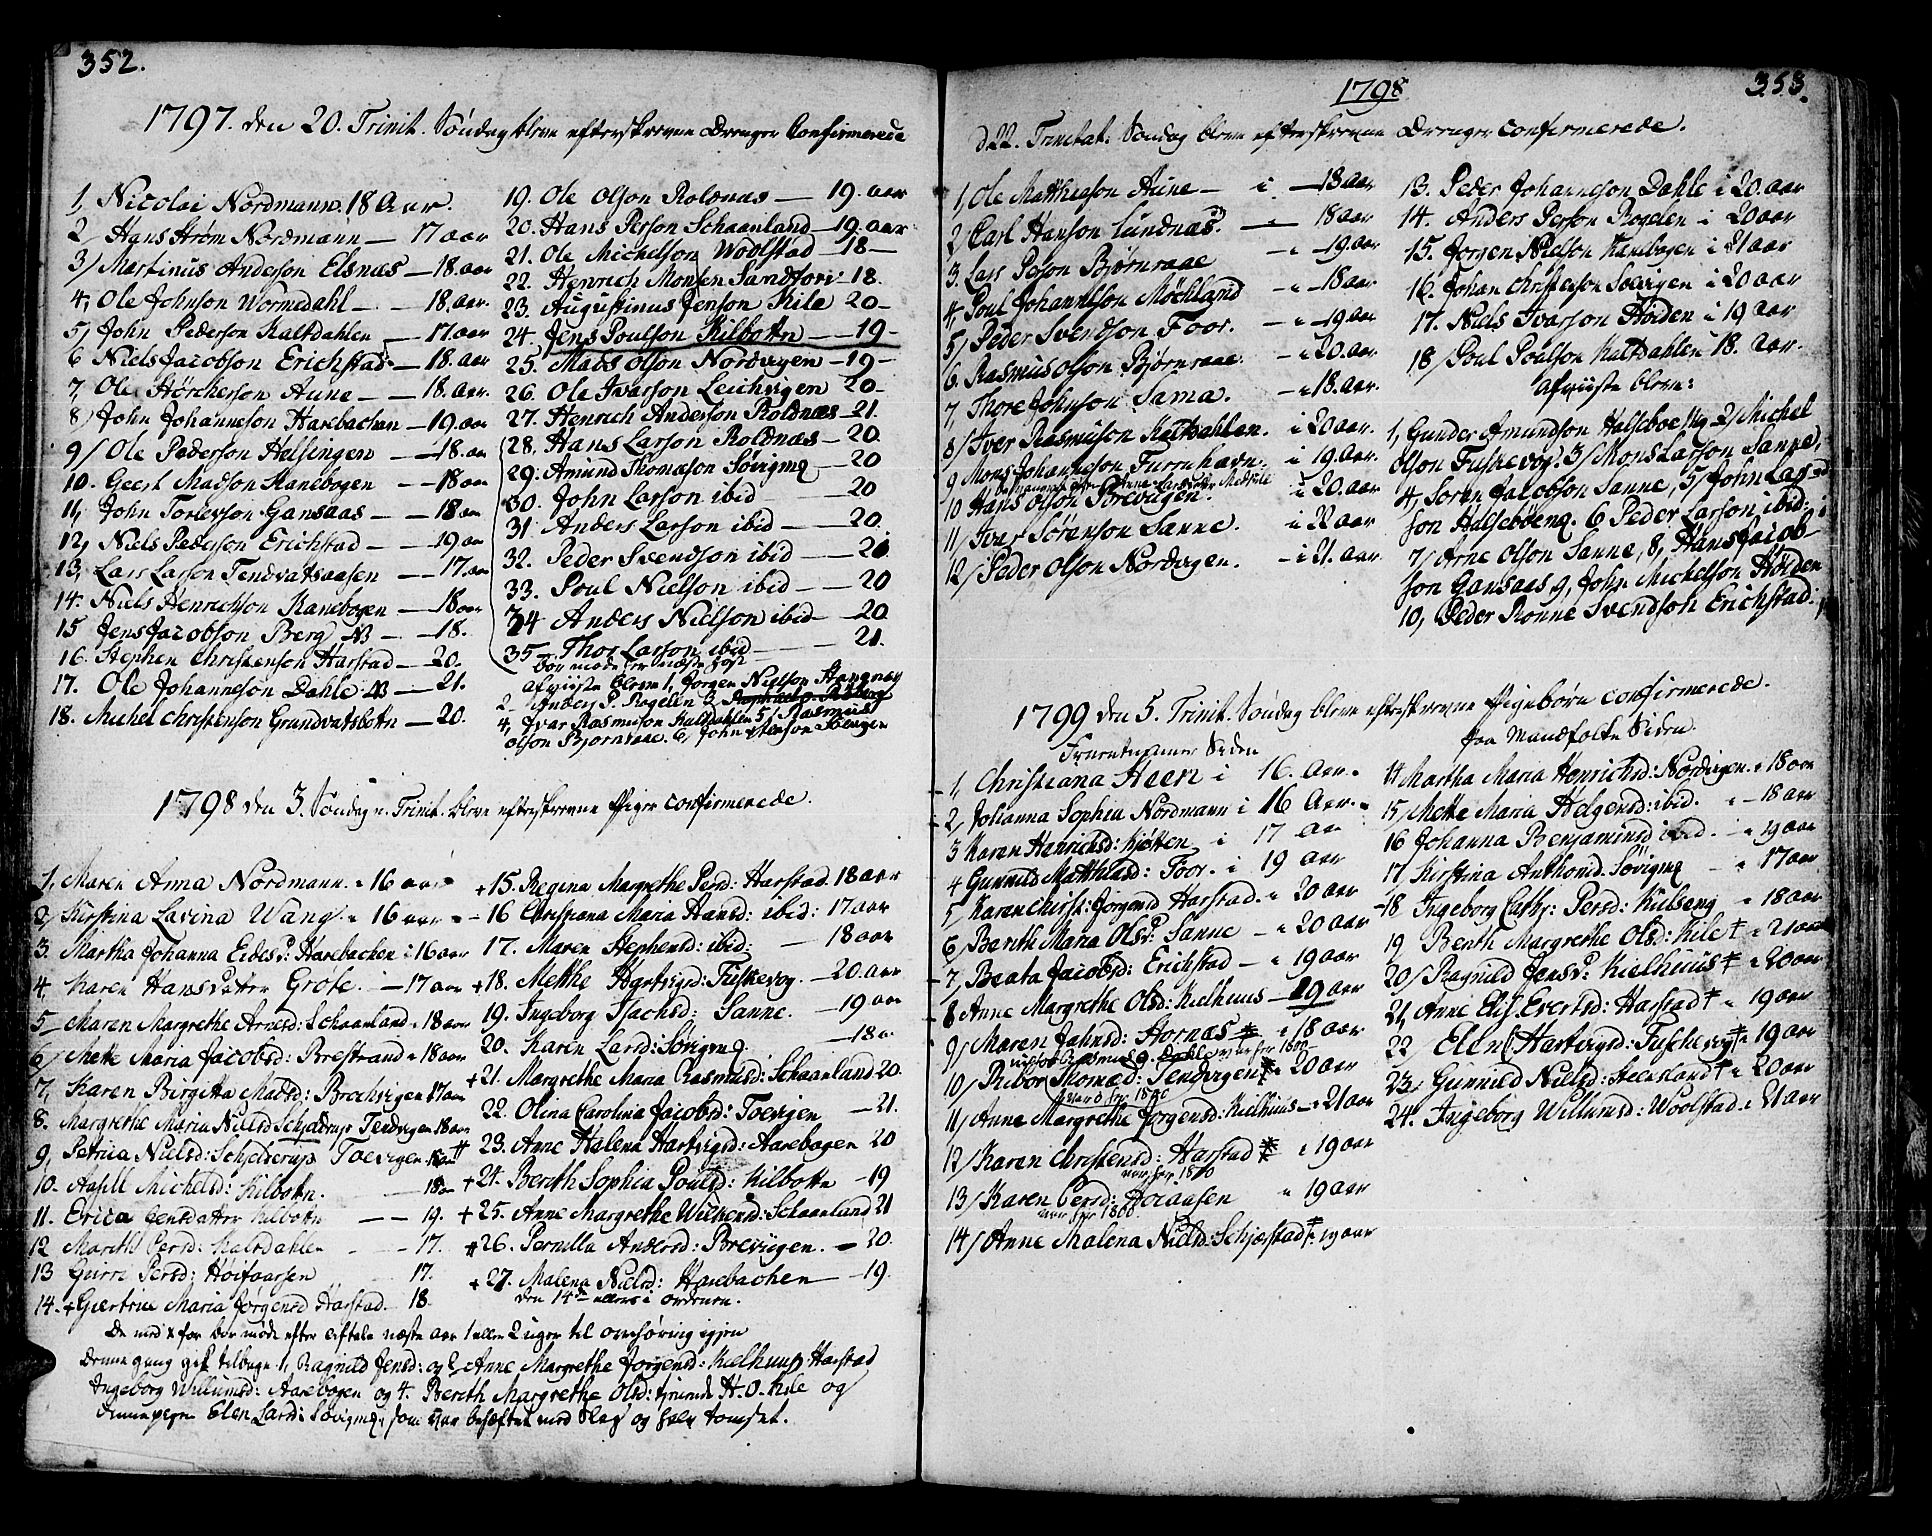 352.
1797. den 20. Trinit. Søndag bleve efterskrevne Drenger Confirmerede
1, Nicolai Nordmann. 18 Aar.
2/ Hans Strøm Nordmann — 17 aar
3/ Martinus Anderson Elsnæs — 18. aar
4, Ole Johnson Wormdahl — 18. aar.
5/ John Pederson Kaltdahlen — 17. aar
6 Niels Jacobson Erichstad — 18. aar
7, Ole Hørcherson Aune — 18. aar.
8/ John Johanneson Harebachen — 19. aar
9/ Ole Pederson Helsingen — 18. aar
10. Geert Madson Kanebogen — 18 aar
11, John Torlevson Gansaas — 18 aar
12, Niels Pederson Erichstad — 19 aar
13, Lars Larson Tendvatsaasen — 17. aar
14. Niels Henrichson Kanebogen — 18 aar
15 Jens Jacobson Berg NB — 18.
16. Stephen Christenson Harstad — 20.
17. Ole Johanneson Dahle. NB — 21.
18. Michel Christenson Grundvatsbotn — 20.
19. Ole Olson Roldnæs — 19. aar
20. Hans Person Schaanland — 19. aar
21. Ole Michelson Woolstad — 18 —
22. Henrich Monsen Sandtorv — 18.
23. Augustinus Jenson Kile 20 —
24. Jens Poulson Kilbottn — 19 —
25. Mads Olson Nordvigen — 19 —
26. Ole Ivarson Leichvigen 20 —
27. Henrich Anderson Roldnæs — 21.
28. Hans Larson Roldnæs — 20.
29. Amund Thomæson Søvigng — 20
30. John Larson ibid — 20
31 Anders Larson ibid — 20.
32. Peder Svendson ibid — 20
33. Poul Nielson ibid — 20
34 Anders Nielson ibid — 20
35 — Thor Larson ibid — 21.
bør møde før næste Høst
afviiste bleve 1, Jorgen Nielson
2 Anders P. Rogelen 3
4, Ivar Rasmuson Kaltdahlen 5, Rasmus
Olson Bjørnraae. 6, John
1798 den 3. Søndag e. Trinit. bleve efterskrevne Piger confirmerede.
1, Maren Anna Nordmann. 16 aar
2, Kirstina Lavina Wang 16 aar
3. Martha Johanna Eidesd: Harebachen i 16 aar
4, Karen Hansdatter Grøse. — 17 aar
5 — Maren Margrethe Arnesd: Schaanland 18 aar
6/ Mette Maria Jacobsd: Brestrand 18 aar
7, Karen Birgitta Madsd: Brochvigen 17 aar
8. Margrethe Maria Nielsd Schjelderup Tendvigen 18 aar
9, Petrica Nielsd: Schjelderup Toevigen
10. Aasill Michelsd: Kilbottn. — 18 aar
11. Erica Jensdatter Kilbottn — 19.
12 Marith Persd: Kaltdahlen — 17.
13 Gurri Persd: Høifaarsen 17.
14. + Giertrue Maria Jørgensd Harstad. — 18
+ 15. Regina Margrethe Persd: Harstad 18 aar
— 16 Christiana Maria Hansd: ibid: 17 aar
17. Maren Stephensd: ibid: — 18 aar
+ 18. Methe Hartvigsd: Fiskevog. — 20. aar
19. Ingeborg Isachsd: Sanne. — 19 aar
20. Karen Larsd: Søvigng. — 18
+ 21. Margrethe Maria Rasmusd: Schaanland 20.
22. Olina Carolina Jacobsd: Toevigen — 21.
23. Anne Halena Hartvigsd: Aarebogen 20
+ 24. Berith Sophia Poulsd: Kilbottn — 19
+ 25. Anne Margrethe Willumsd: Schaanland 21
26. Pernilla Andersd: Brevigen. — 20.
+ 27. Malena Nielsd: Harebachen — 19.
den 14de ellers i ordenen.
De med x for bør møde efter aftale næste aar 1 eller 2 uger til omhøring igjen
Denne gang gik tilbage 1, Ragnild Jensd: og 2 Anne Margrethe Jorgensd: Kielhuus Harstad
Ingeborg Willumsd: Aarebogen og 4. Berith Margrethe Olsd: H. O. Kile og
Elen Larsd: Søvigng, som var behæftet med Slag og
353.
1798
d. 22. Trinitat: Søndag bleve efterskrevne Drenger confirmerede.
1, Ole Mathieson Aune — i — 18 aar
2/ Carl Hanson Lundnæs. — 18 aar
3. Lars Person Bjørnraae — 19 aar
4, Poul Johannson Møchland — 18 aar
5/ Peder Svendson Foor. — 19 aar
6. Rasmus Olson Bjørnraae. — 20. aar
7, Thore Johnson Sama. — 18. aar
8/ Iver Rasmuson Kaltdahlen. i 20 aar.
9 Mons Johanneson Furrehavn. i 19. aar
10 Hans Olson Brevigen. i 20. aar
11/ Iver Sørenson Sanne. i 22 aar
12/ Peder Olson Nordvigen. — i 21. aar
13. Peder Johanneson Dahle i 20. aar
14. Anders Person Rogelen i 20 aar
15. Jørgen Nielson Kanebogen i 21 aar
16. Johan Christenson Søvigen i 20 aar
17. Niels Ivarson Høiden i 19 aar
18/ Poul Poulson Kaltdahlen 18. Aar.
afviiste bleve:
1, Gunder Amundson Halseboeng 2/ Michel
Olson Fuskevog. 3/ Mons Larson Sanne,
4, Soren Jacobson Sanne, 5/ John Lar-
son Halsebøeng. 6 Peder Larson ibid:
7/ Arne Olson Sanne, 8, Hans Jacob-
son Gansaas 9, John Michelson Høiden
10, Peder Rønne Svendson Erichstad.
1799 den 5. Trinit. Søndag bleve efterskrevne Pigebørn confirmerede.
Fruentimmer Siden
1, Christiana Heen i 16. Aar.
2, Johanna Sophia Nordmann i 16 Aar.
3 Karen Henrichsd: Kjøtten i 17 aar
4 Gunnild Matthiasd: Foor. i 19 aar
5/ Karen Christ: Jorgensd Harstad 20 aar
6/ Berith Maria Olsd: Sanne — 20 aar
7, Beata Jacobsd: Erichstad — 19 aar
8 Anne Margrethe Olsd: Kielhuus — 19 aar
9/ Maren Johnsd: Stornæs 18 aar
10/ Rebor Thomæd: Tendvigen 20 aar
11/ Anne Margrethe Jorgensd: Kielhuus — 21 aar
12/ Karen Christensd: Harstad 19 aar
13/ Karen Persd: Horaasen 19 aar
14/ Anne Malena Nielsd: Schjæstad 19 aar
paa Mandfolke Siden.
14 Martha Maria Henrichsd: Nordvigen. 18 aar
15/ Mette Maria Helgensd: ibid. 18 aar
16 Johanna Benjaminsd ibid. 19 aar
17 Kirstina Anthonid. Søvigng 17 aar
18 Ingeborg Cathr: Persd: Kulseng 18 aar
19 Berith Margrethe Olsd: Kile 21 aar
20/ Ragnild Jensd: Kielhuus 20 aar
21, Anne Elis. Evertsd: Harstad 19 aar
22 Elen Hartvigsd: Fuschevog 19 aar
23, Gunnild Nielsd: Steensland 20 aar
24. Ingeborg Willumsd: Woolstad. 21 aar